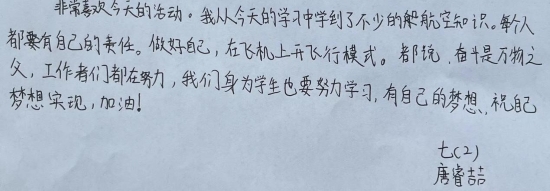 非常喜欢今天的活动。我从今天的学习中学到了不少的船航空知识。每个人
都要有自己的责任。做好自己，在飞机上开飞行模式。都说，奋斗是万物之
父，工作者们都在努力，我们身为学生也要努力学习，有自己的梦想，祝自己
梦想实现，加油！
七(2)
唐睿喆